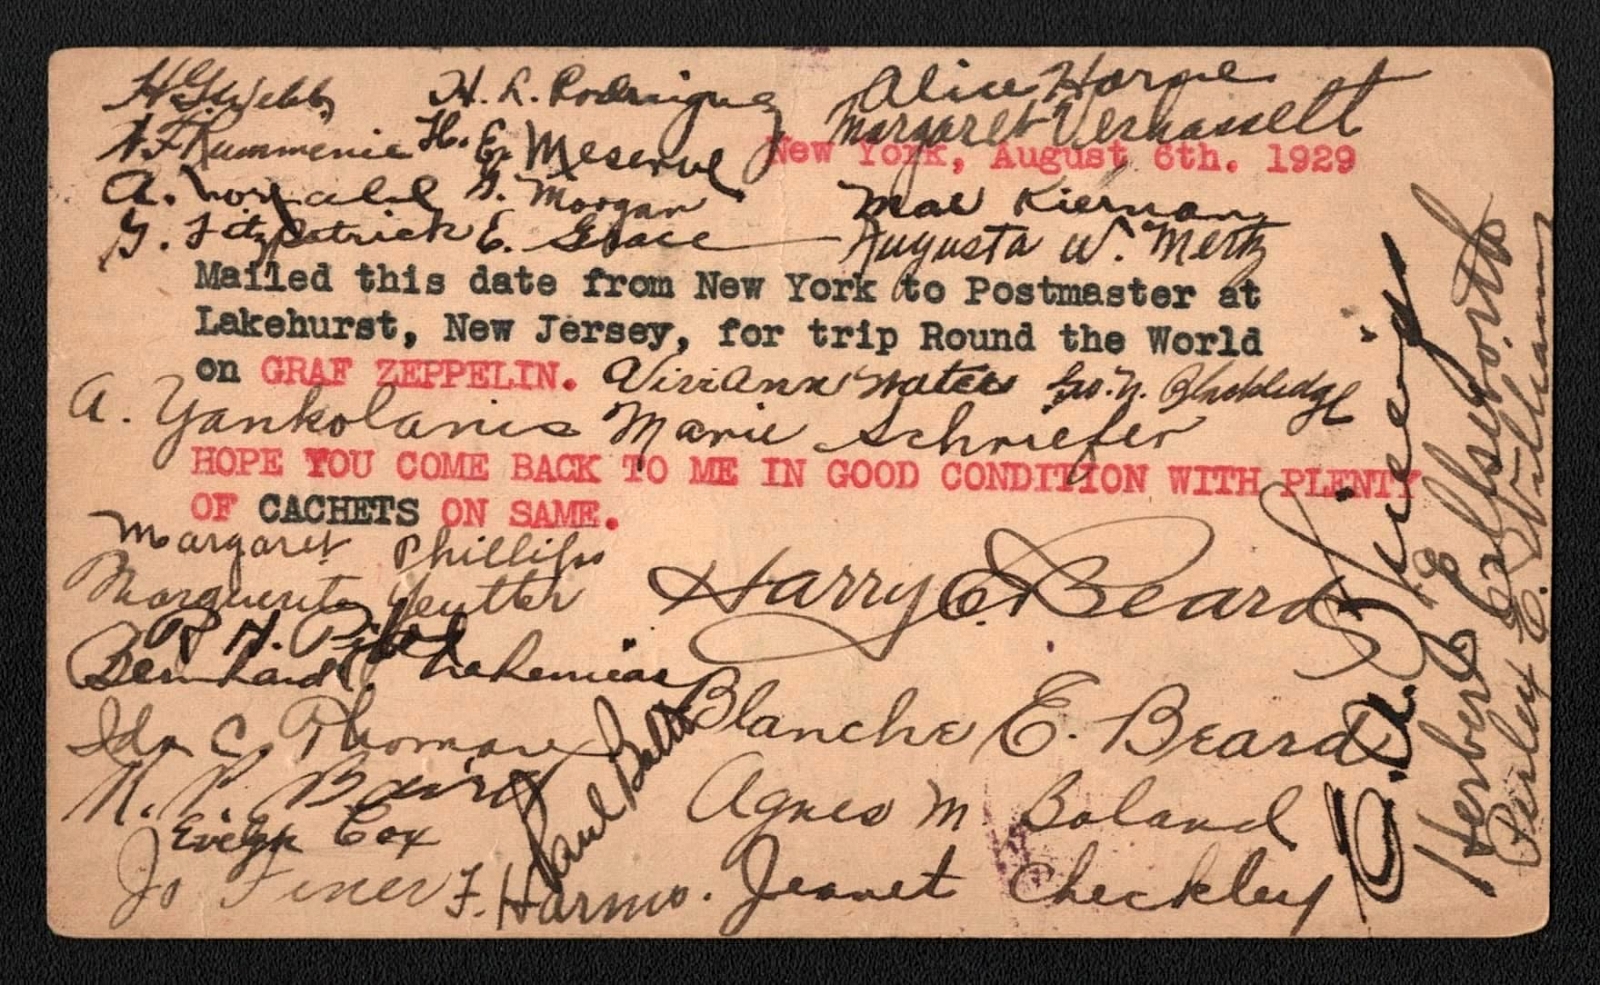 H. G. Webb H. L. Rodriguez Alice Horne
Margaret
H. E. Meserve New York, August 6th. 1929
A. G. Morgan Mae Kiernan
G. Fitzpatrick E. Grace Augusta W. Mertz
Mailed this date from New York to Postmaster at
Lakehurst, New Jersey, for trip Round the World
on GRAF ZEPPELIN. Vivi Ann Waters Geo. N. Blackledge
A. Yankolanis Marie Schriefer
HOPE YOU COME BACK TO ME IN GOOD CONDITION WITH PLENTY
OF CACHETS ON SAME.
Margaret Phillips
Marguerite Yeutter Harry E. Beard
R. H.
Bernhard Nehemias
Blanche E. Beard
Ida C. Thoman
K. P. Baird Paul
Agnes M Boland
Evelyn Cox
Jo Finer F. Harms. Jeanet Checkley
Herbert E. Ellsworth
Perley E. Williams